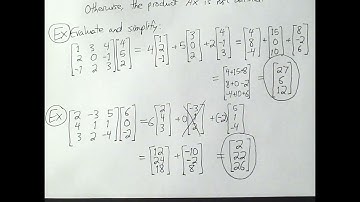 Otherwise, the product Ax is not
Ex Evaluate and simplify:
[1 3 4; 2 0 -1; -1 2 3] [4; 5; 2] = 4 [1; 2; -1] + 5 [3; 0; 2] + 2 [4; -1; 3] = [4; 8; -4] + [15; 0; 10] + [8; -2; 6]
= [4+15+8; 8+0-2; -4+10+6] = [27; 6; 12]
Ex [2 -3 5; 4 1 1; 3 2 -4] [6; 0; -2] = 6 [2; 4; 3] + 0 [-3; 1; 2] + (-2) [5; 1; -4]
= [12; 24; 18] + [-10; -2; 8] = [2; 22; 26]